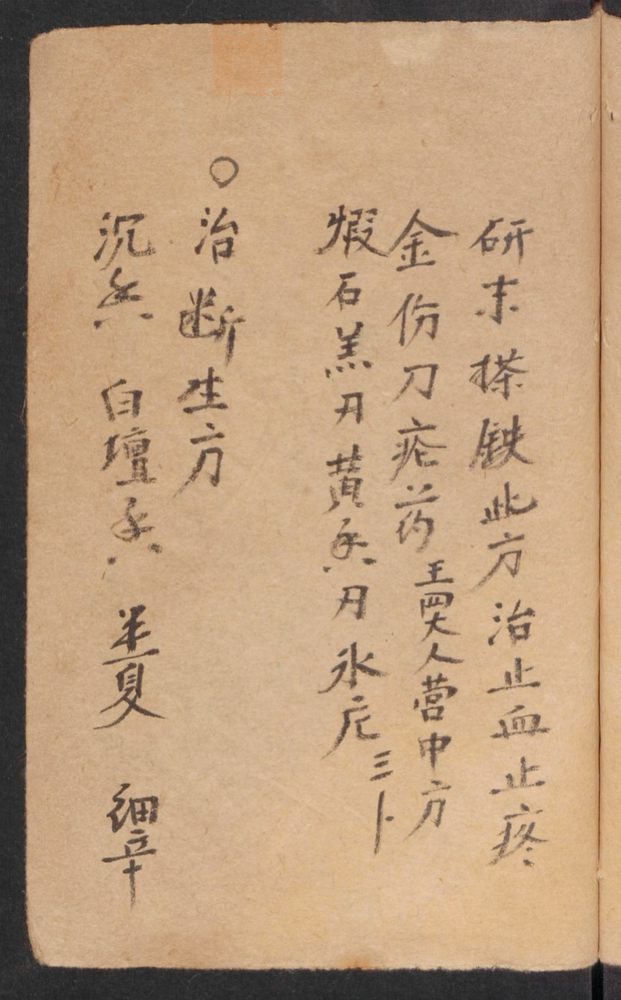 研末搽鉄此方治止血止疼
金份刀疮药 王四大人营中方
煆石羔刄黄香刄氷 三卜
○治断生方
沉香 白壇香 半夏 细辛